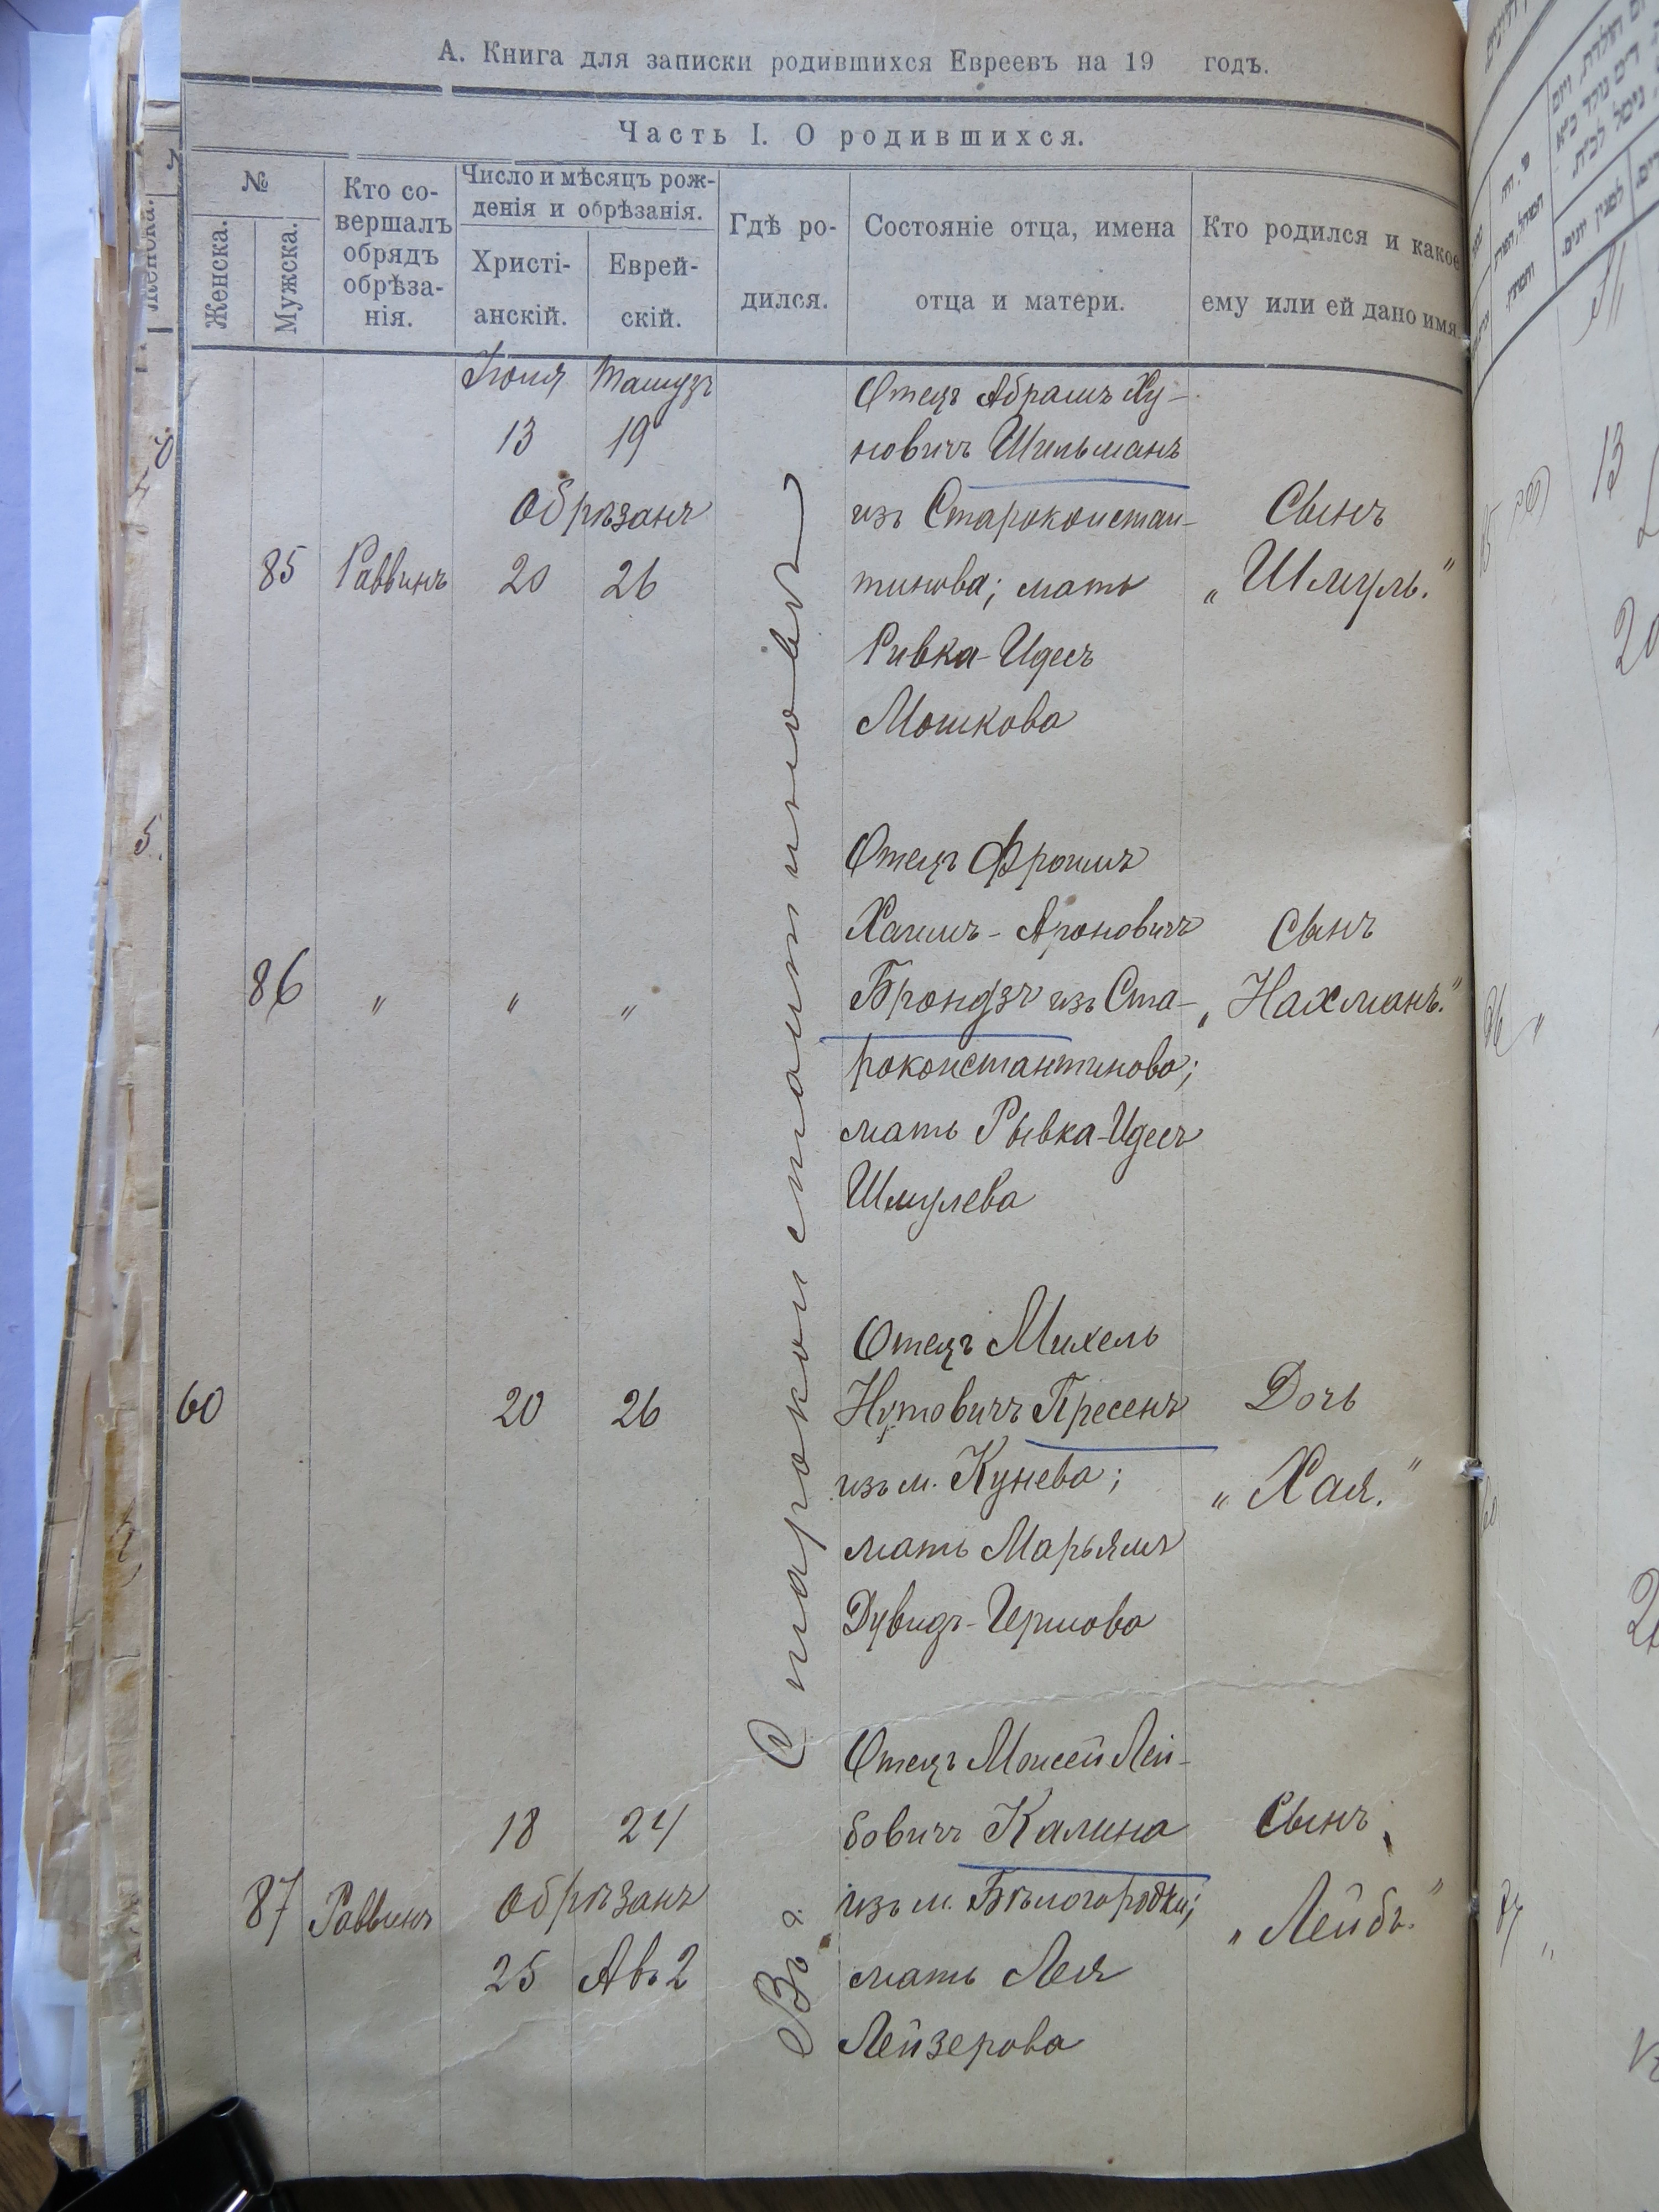 А. Книга для записки родившихся Евреевъ на 19 годъ.
Часть I. О родившихся.
№
Женска.
Мужска.
Кто со-
вершалъ
обрядъ
обрѣза-
нія.
Число и мѣсяцъ рож-
денія и обрѣзанія.
Христі-
анскій.
Еврей-
скій.
Гдѣ ро-
дился.
Состояніе отца, имена
отца и матери.
Кто родился и какое
ему или ей дано имя
Іюня Тамузъ
13 19
Обрѣзанъ
85 Раввинъ 20 26
Отецъ Абрамъ Ху-
новичъ Шильманъ
изъ Староконстан-
тинова; мать
Ривка-Идесъ
Мошкова
Сынъ
„Шмуль."
86 " " "
Отецъ Фроимъ
Хаимъ-Ароновичъ
Брондзъ из Ста-
роконстантинова;
мать Рывка-Идесъ
Шмулева
Сынъ
„Нахманъ."
60 20 26
Отецъ Михель
Нутовичъ Пресенъ
изъ м. Кунева;
мать Марьямъ
Дувидъ-Гершова
Дочь
„Хая."
18 24
87 Раввинъ Обрѣзанъ
25 Авъ 2
Отецъ Моисей Лей-
бовичъ Калина
изъ м. Бѣлогородки;
мать Лея
Лейзерова
Сынъ
„Лейбъ."
Въ г. Староконстантиновѣ